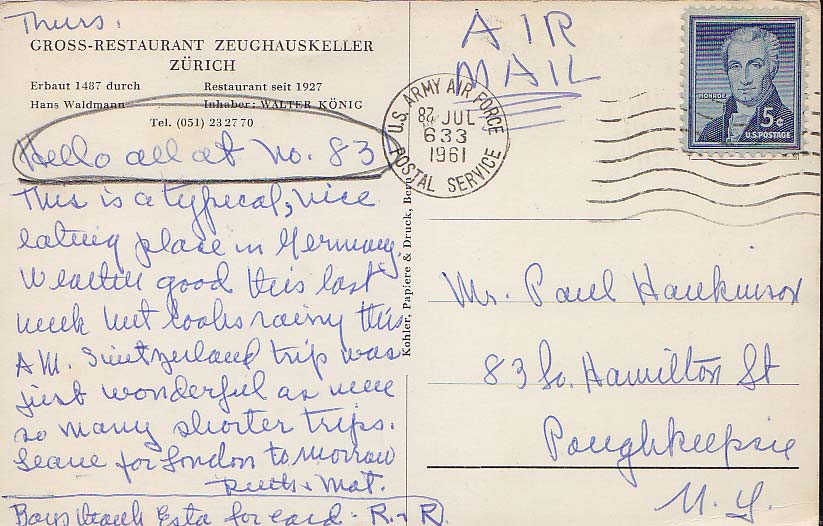 Thurs.
GROSS-RESTAURANT ZEUGHAUSKELLER
ZÜRICH
Erbaut 1487 durch
Hans Waldmann
Restaurant seit 1927
Inhaber: WALTER KÖNIG
Tel. (051) 23 27 70
Hello all at No. 83
This is a typical, nice
eating place in Germany.
Weather good this last
week but looks rainy this
AM. Switzerland trip was
just wonderful as were
so many shorter trips.
Leave for London tomorrow
Ruth & Mat.
Boys thank Esta for card - R. & R.
Kohler, Papiere & Druck, Bern
AIR
MAIL
U.S. ARMY AIR FORCE
28 JUL
633
1961
POSTAL SERVICE
MONROE
5¢
U.S. POSTAGE
Mr. Paul Hankinson
83 So. Hamilton St
Poughkeepsie
N. Y.